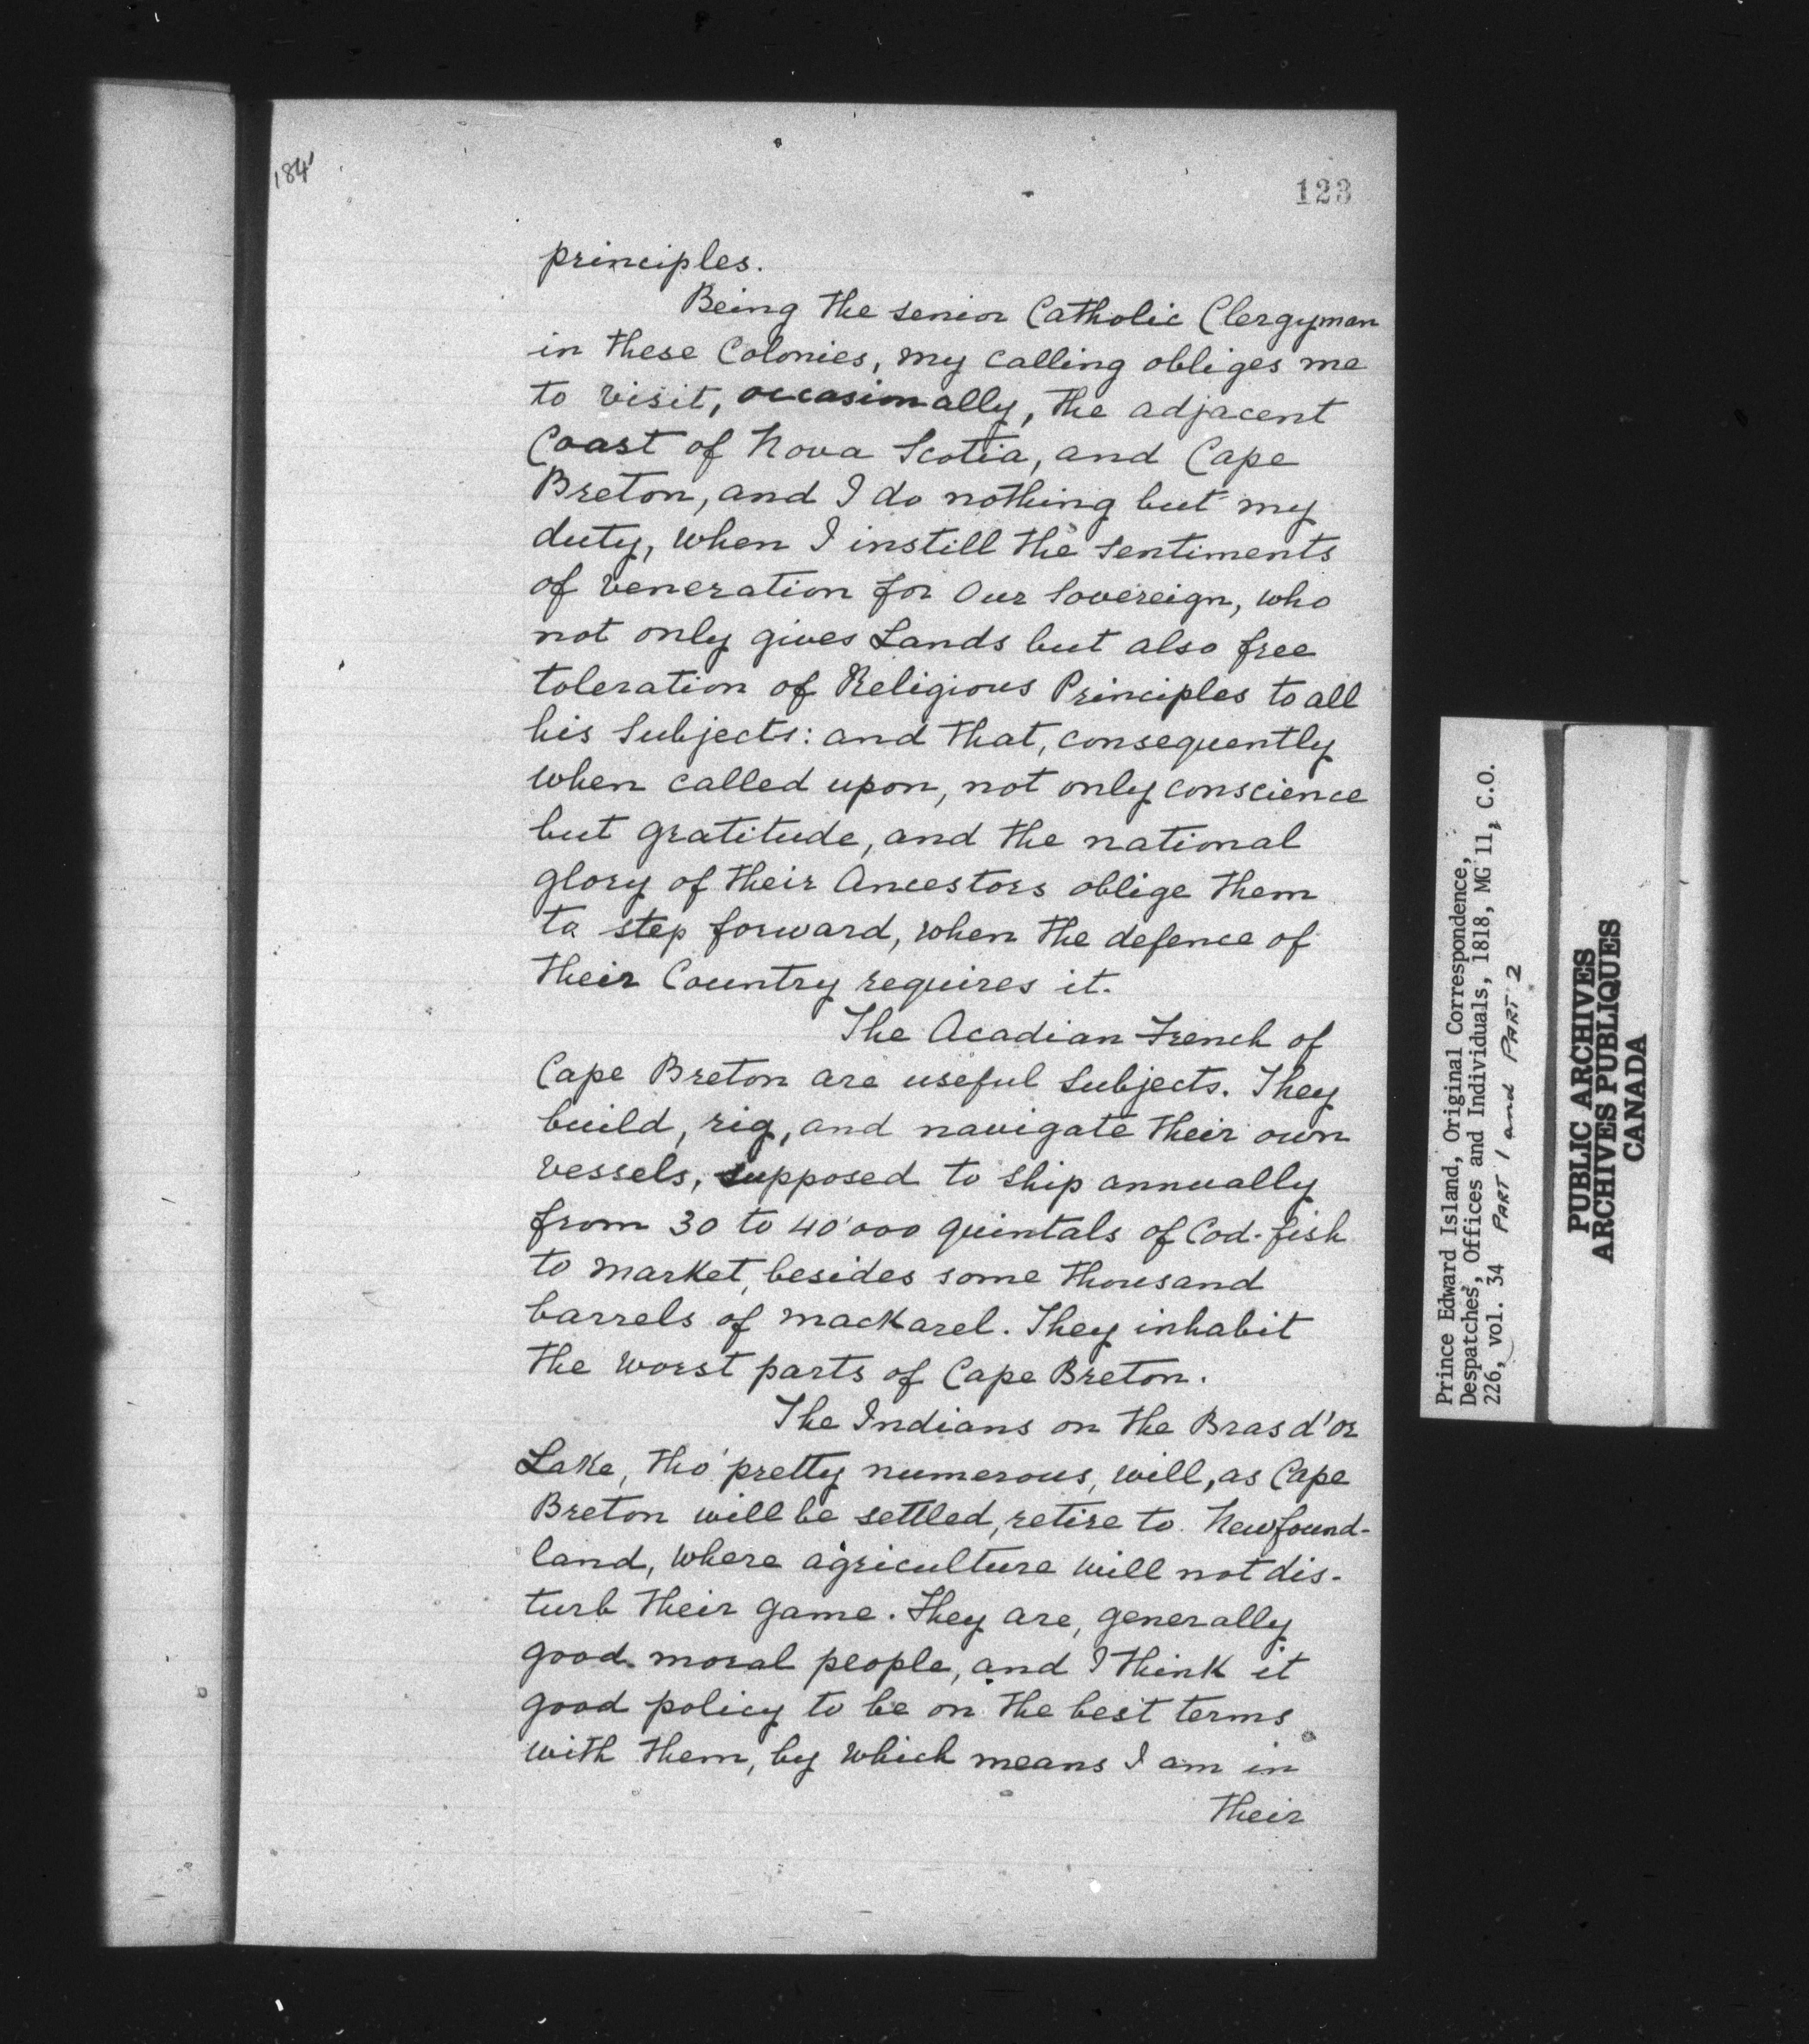 184'
123
principles.
Being the senior Catholic Clergyman
in these Colonies, my calling obliges me
to visit, occasionally, the adjacent
Coast of Nova Scotia, and Cape
Breton, and I do nothing but my
duty, when I instill the sentiments
of veneration for Our Sovereign, who
not only gives Lands but also free
toleration of Religious Principles to all
his Subjects: and that, consequently
when called upon, not only conscience
but gratitude, and the national
glory of their Ancestors oblige them
to step forward, when the defence of
their Country requires it.
The Acadian French of
Cape Breton are useful Subjects. They
build, rig, and navigate their own
vessels, supposed to ship annually
from 30 to 40'000 quintals of Cod-fish
to market, besides some thousand
barrels of mackarel. They inhabit
the worst parts of Cape Breton.
The Indians on the Bras d'or
Lake, tho' pretty numerous, will, as Cape
Breton will be settled, retire to Newfound-
land, where agriculture will not dis-
turb their game. They are, generally
good moral people, and I think it
good policy to be on the best terms
with them, by which means I am in
their
Prince Edward Island, Original Correspondence,
Despatches, Offices and Individuals, 1818, MG 11, C.O.
226, vol. 34 PART 1 and PART 2
PUBLIC ARCHIVES
ARCHIVES PUBLIQUES
CANADA